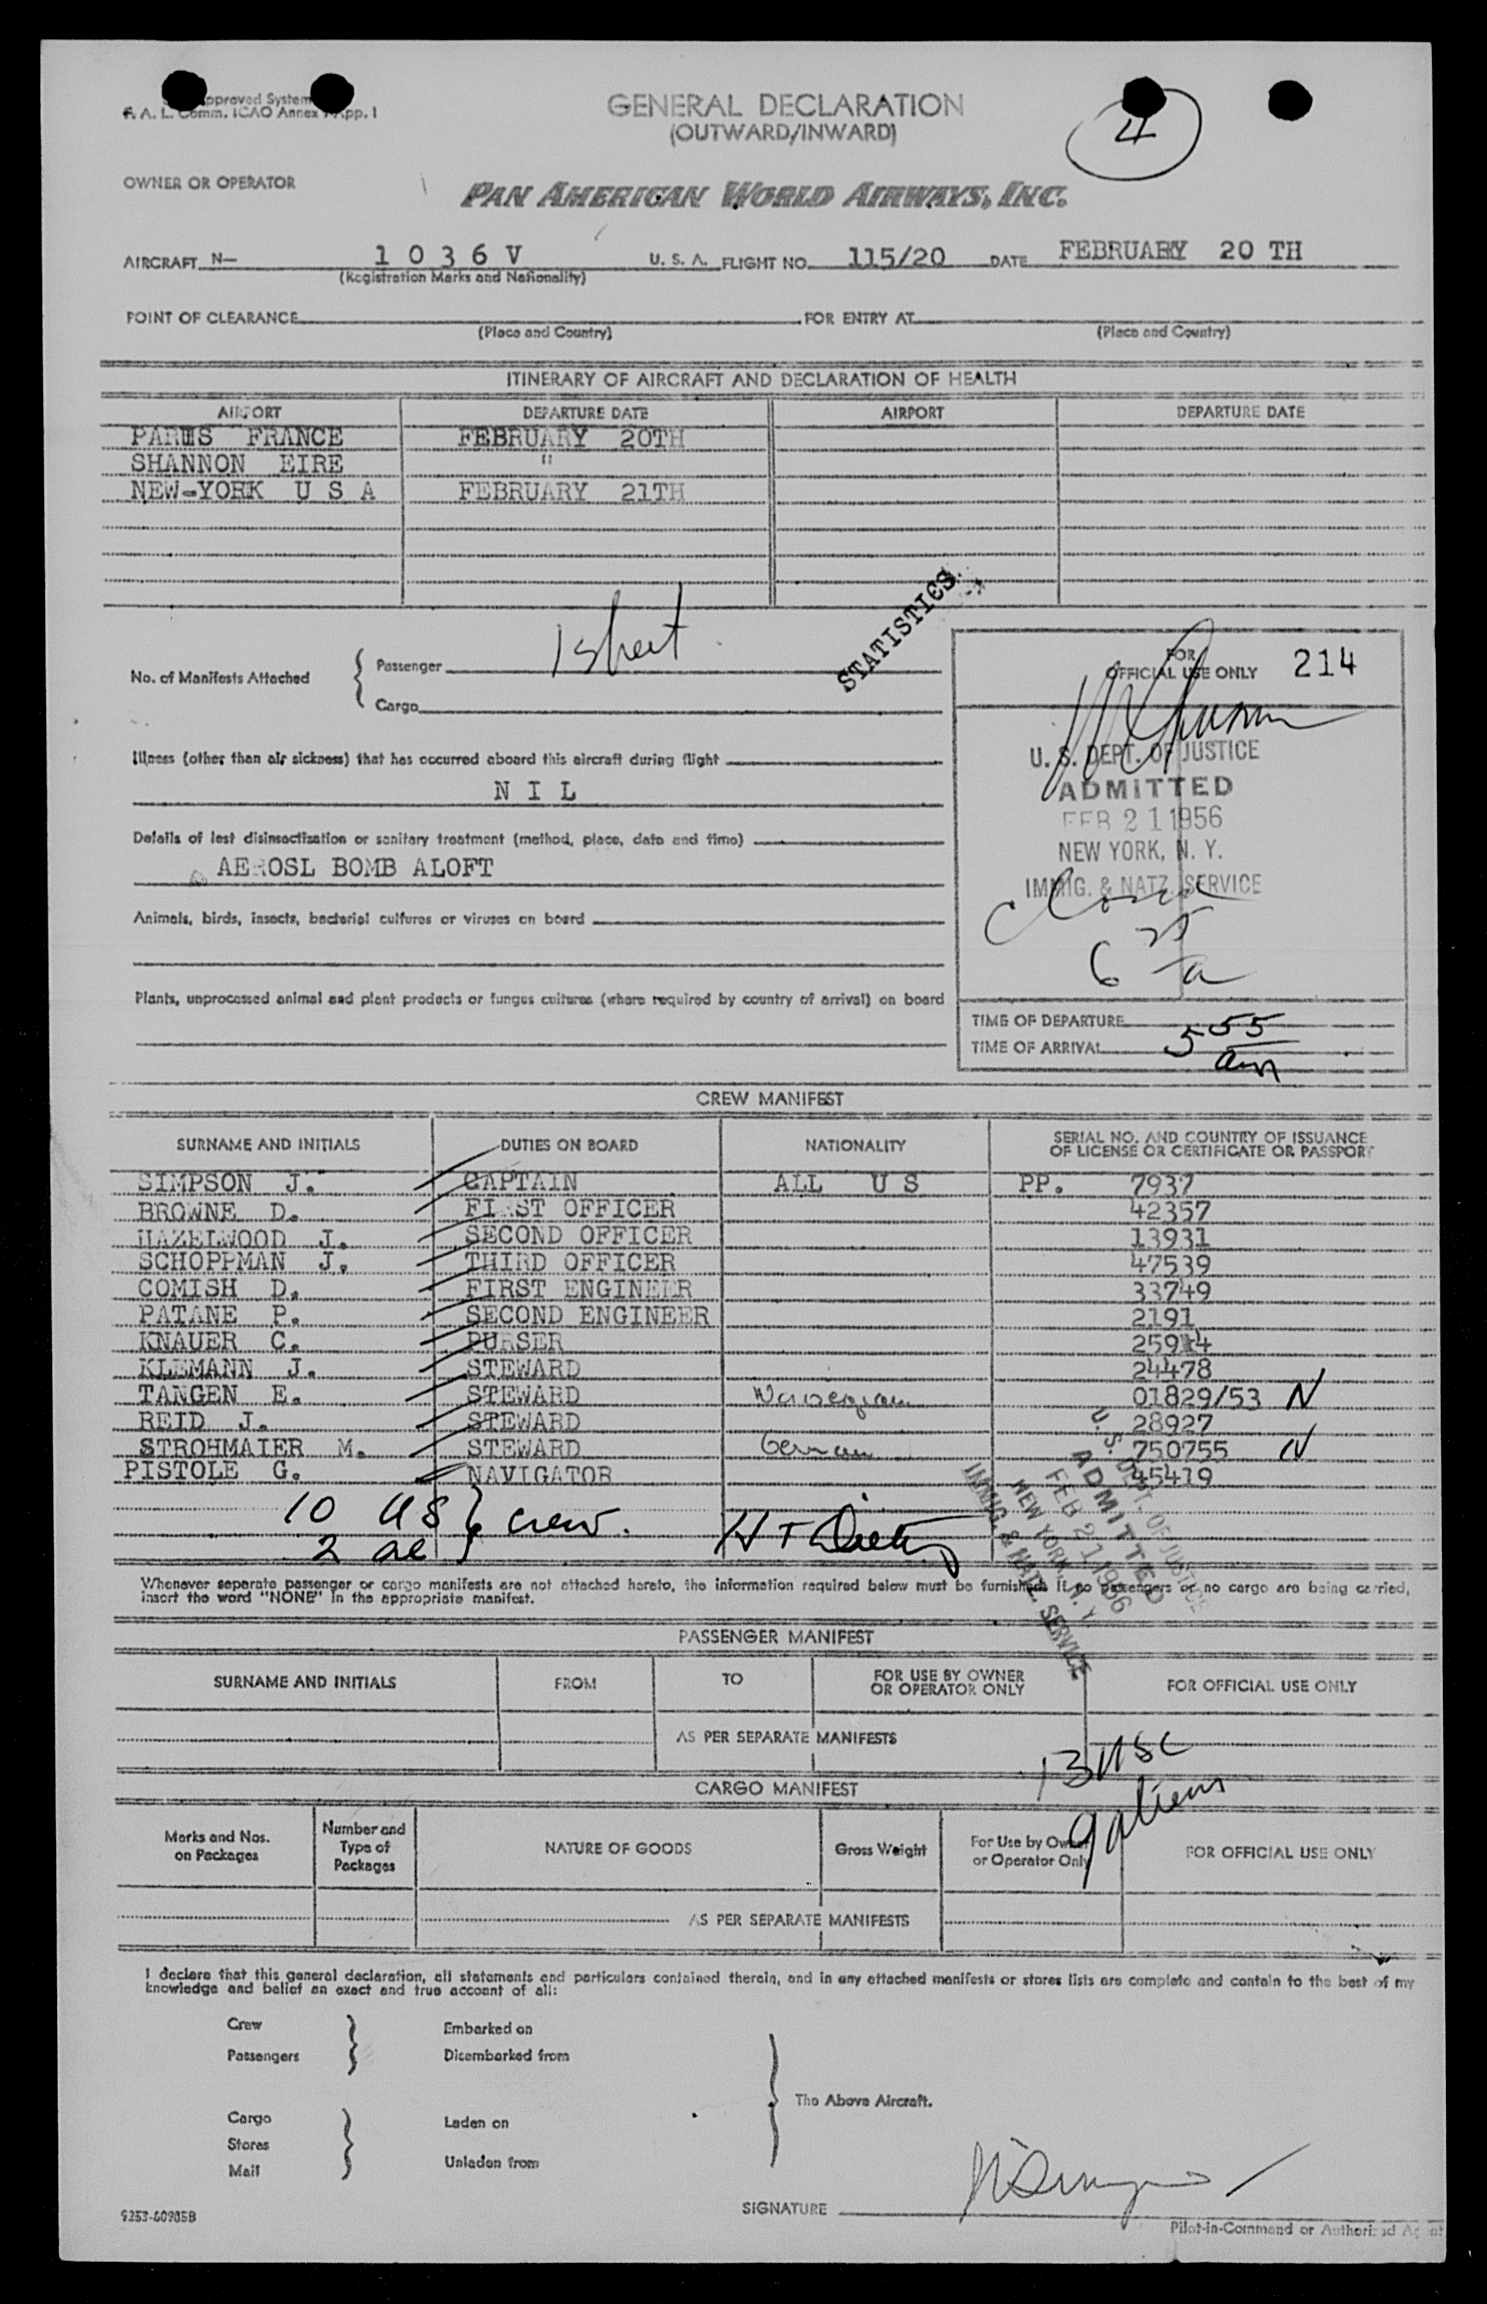 Approved System
F. A. L. Comm. ICAO Annex App. 1
GENERAL DECLARATION
(OUTWARD/INWARD)
4
OWNER OR OPERATOR
PAN AMERICAN WORLD AIRWAYS, INC.
AIRCRAFT N— 1 0 3 6 V U. S. A. FLIGHT NO. 115/20 DATE FEBRUARY 20 TH
(Registration Marks and Nationality)
POINT OF CLEARANCE FOR ENTRY AT
(Place and Country) (Place and Country)
ITINERARY OF AIRCRAFT AND DECLARATION OF HEALTH
AIRPORT DEPARTURE DATE AIRPORT DEPARTURE DATE
PARIS FRANCE FEBRUARY 20TH
SHANNON EIRE "
NEW-YORK U S A FEBRUARY 21TH
STATISTICS
No. of Manifests Attached { Passenger 1 sheet
Cargo
FOR
OFFICIAL USE ONLY 214
Illness (other than air sickness) that has occurred aboard this aircraft during flight
N I L
U. S. DEPT. OF JUSTICE
ADMITTED
FEB 21 1956
NEW YORK, N. Y.
IMMIG. & NATZ. SERVICE
Details of last disinsectisation or sanitary treatment (method, place, date and time)
AEROSL BOMB ALOFT
Animals, birds, insects, bacterial cultures or viruses on board
Plants, unprocessed animal and plant products or fungus cultures (where required by country of arrival) on board
TIME OF DEPARTURE
TIME OF ARRIVAL 5 55 am
CREW MANIFEST
SURNAME AND INITIALS DUTIES ON BOARD NATIONALITY SERIAL NO. AND COUNTRY OF ISSUANCE
OF LICENSE OR CERTIFICATE OR PASSPORT
SIMPSON J. CAPTAIN ALL U S PP. 7937
BROWNE D. FIRST OFFICER 42357
HAZELWOOD J. SECOND OFFICER 13931
SCHOPPMAN J. THIRD OFFICER 47539
COMISH D. FIRST ENGINEER 33749
PATANE P. SECOND ENGINEER 2191
KNAUER C. PURSER 25914
KLEMANN J. STEWARD 24478
TANGEN E. STEWARD Norwegian 01829/53 N
REID J. STEWARD 28927
STROHMAIER M. STEWARD German 750755 N
PISTOLE G. NAVIGATOR 45419
10 US } crew.
2 al
U. S. DEPT. OF JUSTICE
ADMITTED
FEB 21 1956
NEW YORK, N. Y.
IMMIG. & NATZ. SERVICE
Whenever separate passenger or cargo manifests are not attached hereto, the information required below must be furnished. If no passengers or no cargo are being carried,
insert the word "NONE" in the appropriate manifest.
PASSENGER MANIFEST
SURNAME AND INITIALS FROM TO FOR USE BY OWNER
OR OPERATOR ONLY FOR OFFICIAL USE ONLY
AS PER SEPARATE MANIFESTS
13 USC
9 aliens
CARGO MANIFEST
Marks and Nos.
on Packages Number and
Type of
Packages NATURE OF GOODS Gross Weight For Use by Owner
or Operator Only FOR OFFICIAL USE ONLY
AS PER SEPARATE MANIFESTS
I declare that this general declaration, all statements and particulars contained therein, and in any attached manifests or stores lists are complete and contain to the best of my
knowledge and belief an exact and true account of all:
Crew Embarked on
Passengers Disembarked from
The Above Aircraft.
Cargo Laden on
Stores
Mail Unladen from
SIGNATURE
9253-60905B
Pilot-in-Command or Authorized Agent